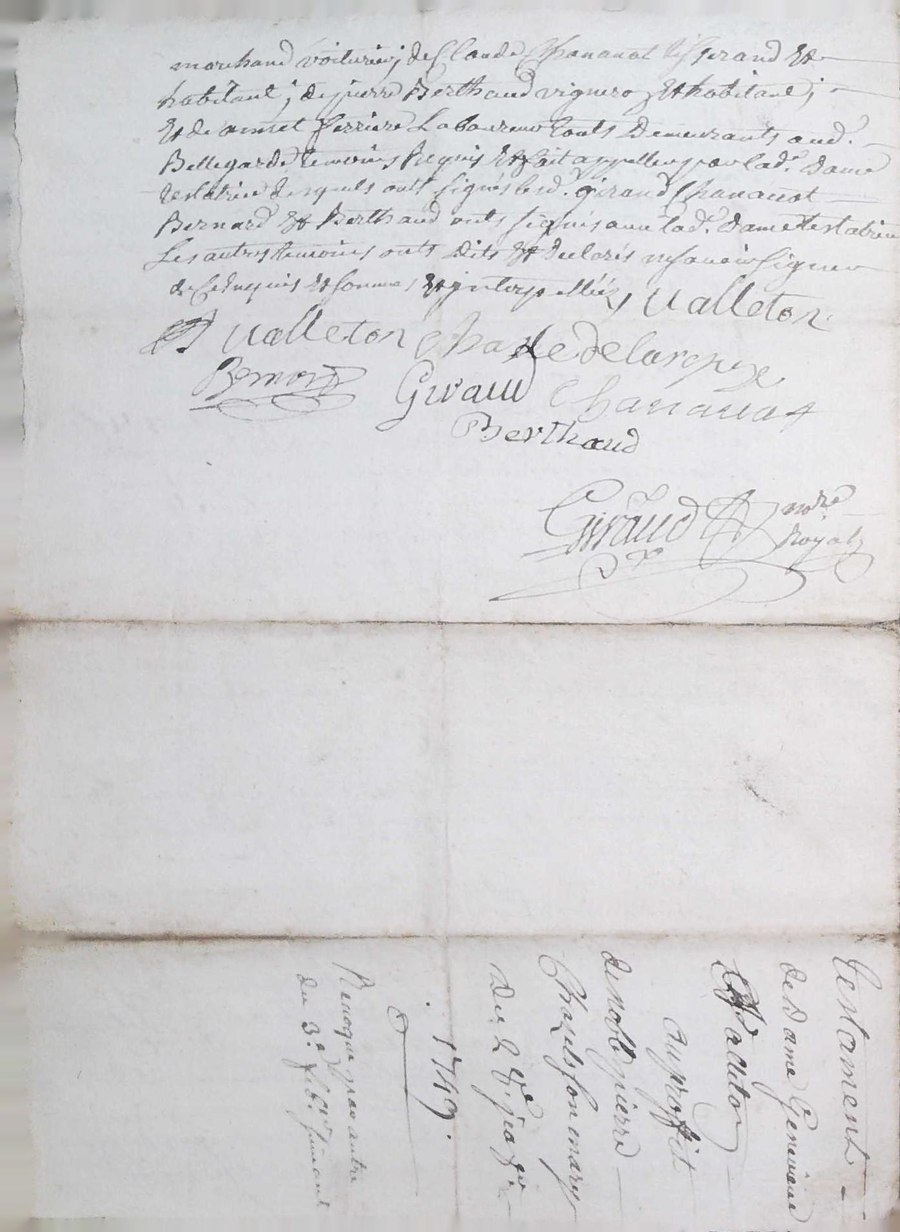 marchand voiturier, de Claude Chanauat tisserand &
habitant, de pierre Berthaud vigneron & habitant,
& de annet ferriere Laboureur touts Demeurants aud.
Bellegarde temoins Requis & fait appeller par lad. dame
testatrice lesquels dits signés led. giraud Chanauat
Bernard & Berthaud onts signés auec lad. Dame testatrice
Les autres temoins onts Dits & declarés ne sauoir signer
de ce Enquis & sommés & interpellés, ualleton
ualleton Chazle
Bernard Giraud Chanauat
Berthaud
Giraud nore
Royal
testament
de Dame Geneuieue
auproffit
de noble pierre
Chazels son mary
Du 2e
1749.
Reuoqué par autre
du 3e suiuant